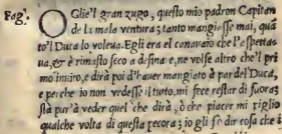 Fag. OGlie'l gran zugo, questo mio padron Capitan
de la mala ventura; tanto mangiasse mai, quã
to'l Duca lo voleua. Egli era el che l'aspettau
ua, & è rimasto seco a dsina e, ne volse altro che'l pri
mo inuiro, e dirà poi d'hauer mangiato à par del Duca,
e perche io non vedesse il tutto, mi fece restar di fuora;
stà pur'à veder quel che dirà, ò che piacer mi piglio
qualche volta di questa pecora; io gli fò dir cosa che i